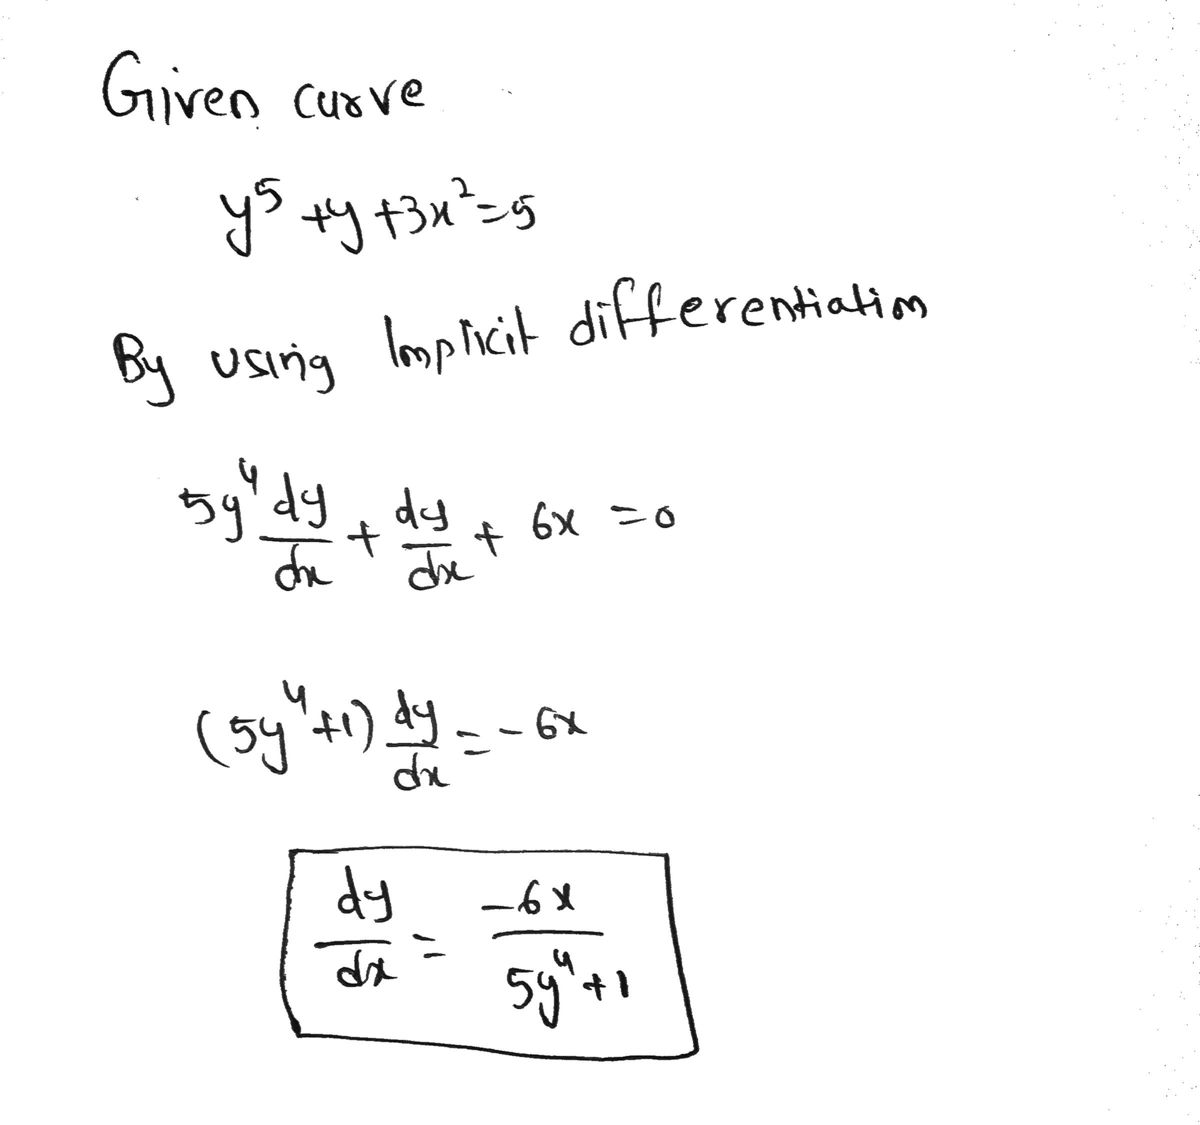 Given curve
y⁵ + y + 3x² = 5
By using Implicit differentiation
5y⁴ dy/dx + dy/dx + 6x = 0
(5y⁴+1) dy/dx = -6x
dy/dx = -6x/(5y⁴+1)